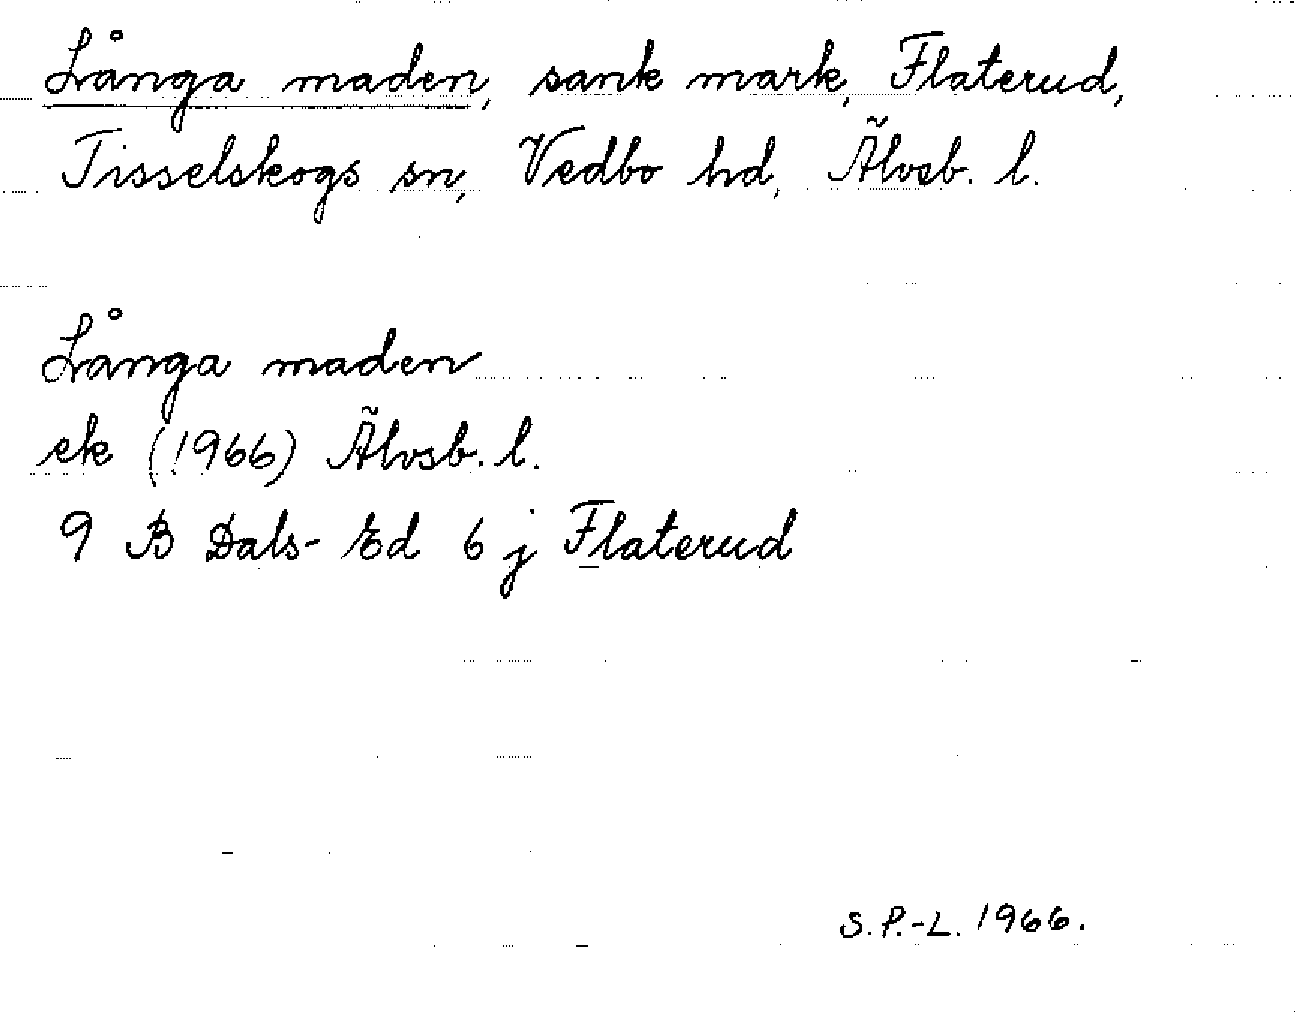 Långa maden, sank mark, Flaterud,
Tisselskogs sn, Vedbo hd, Älvsb. l.
Långa maden
ek (1966) Älvsb. l.
9 B Dals-Ed 6 j Flaterud
S. P.-L. 1966.